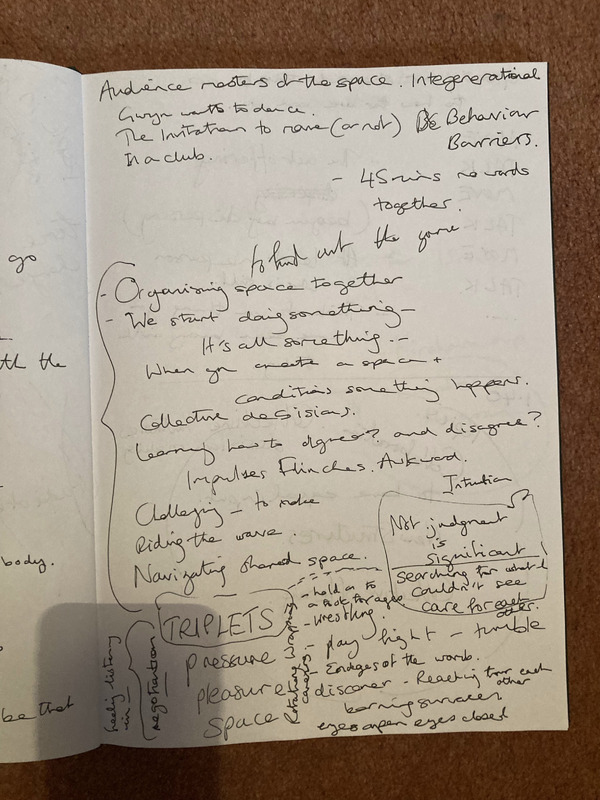 Audience masters of the space. Integenerational
Gwyn wants to dance.
The Invitation to move (or not) Be Behaviour
Barriers.
In a club.
- 45 mins no words
together.
to find out the game
- Organising space together
- We start doing something -
It's all something --
When you create a space +
conditions something happens.
Collective decisions.
Learning how to agree? and disagree?
Impulses Flinches. Awkward.
Intuition
Challenging - to make
Riding the wave.
Navigating shared space.
Not judgment
is
significant
searching for what I
couldn't see
care for each
other.
TRIPLETS
pressure
pleasure
space
- hold on to
a foot for ages
- wrestling.
- play fight - tumble
- Endges of the womb.
discover - Reaching from each
other
learning surfaces
eyes open eyes closed
Rotating wrapping
carrying
negotiation
listening
in -
go
th the
body.
be that